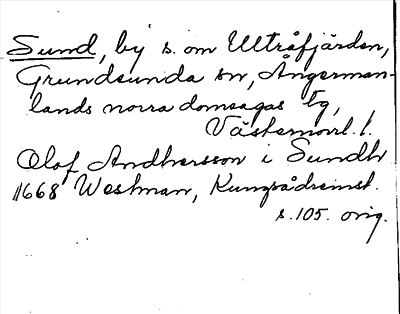 Sund, by s. om Ultråfjärden,
Grundsunda sn, Ångerman-
lands norra domsagas tg,
Västernorrl. l.
Olof Andhersson i Sundh
1668 Westman, Kungsådreinst.
s. 105. orig.